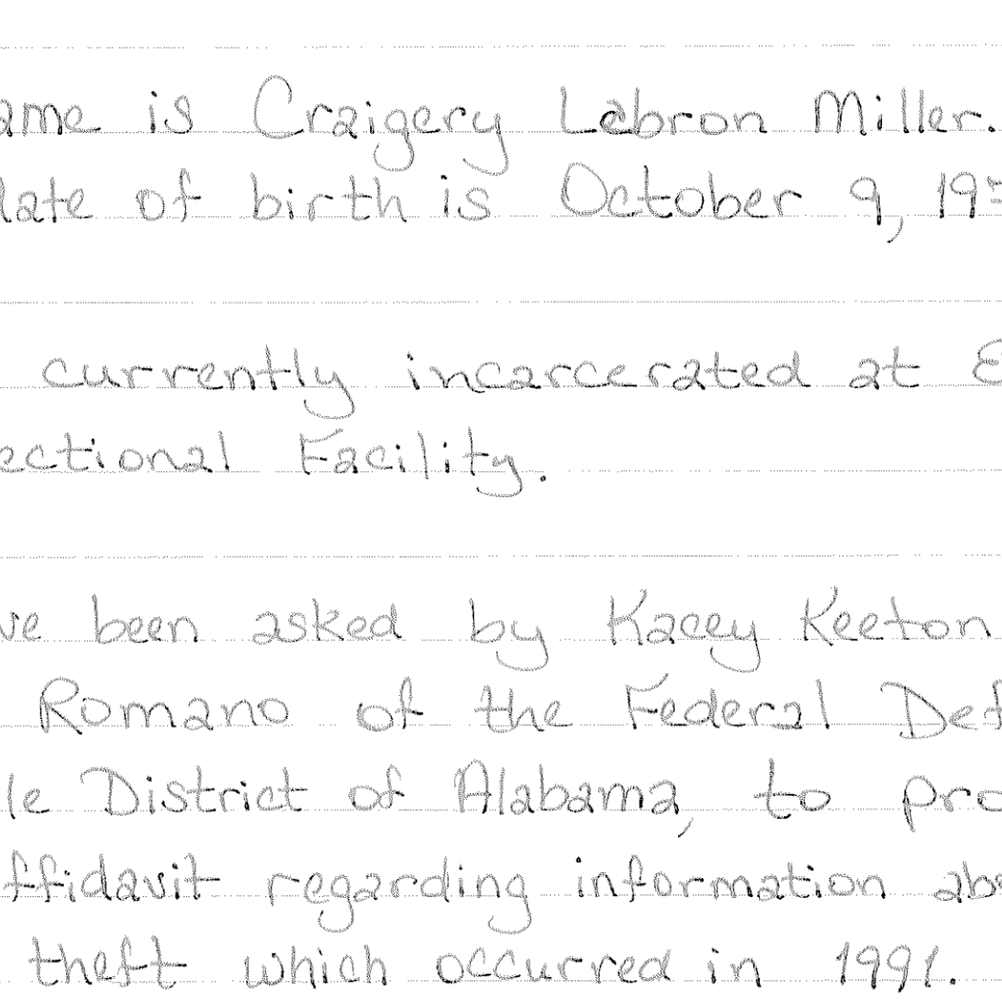 ame is Craigery Labron Miller.
date of birth is October 9, 19
currently incarcerated at E
ectional Facility.
ve been asked by Kacey Keeton
Romano of the Federal Def
le District of Alabama, to pro
ffidavit regarding information abo
theft which occurred in 1991.